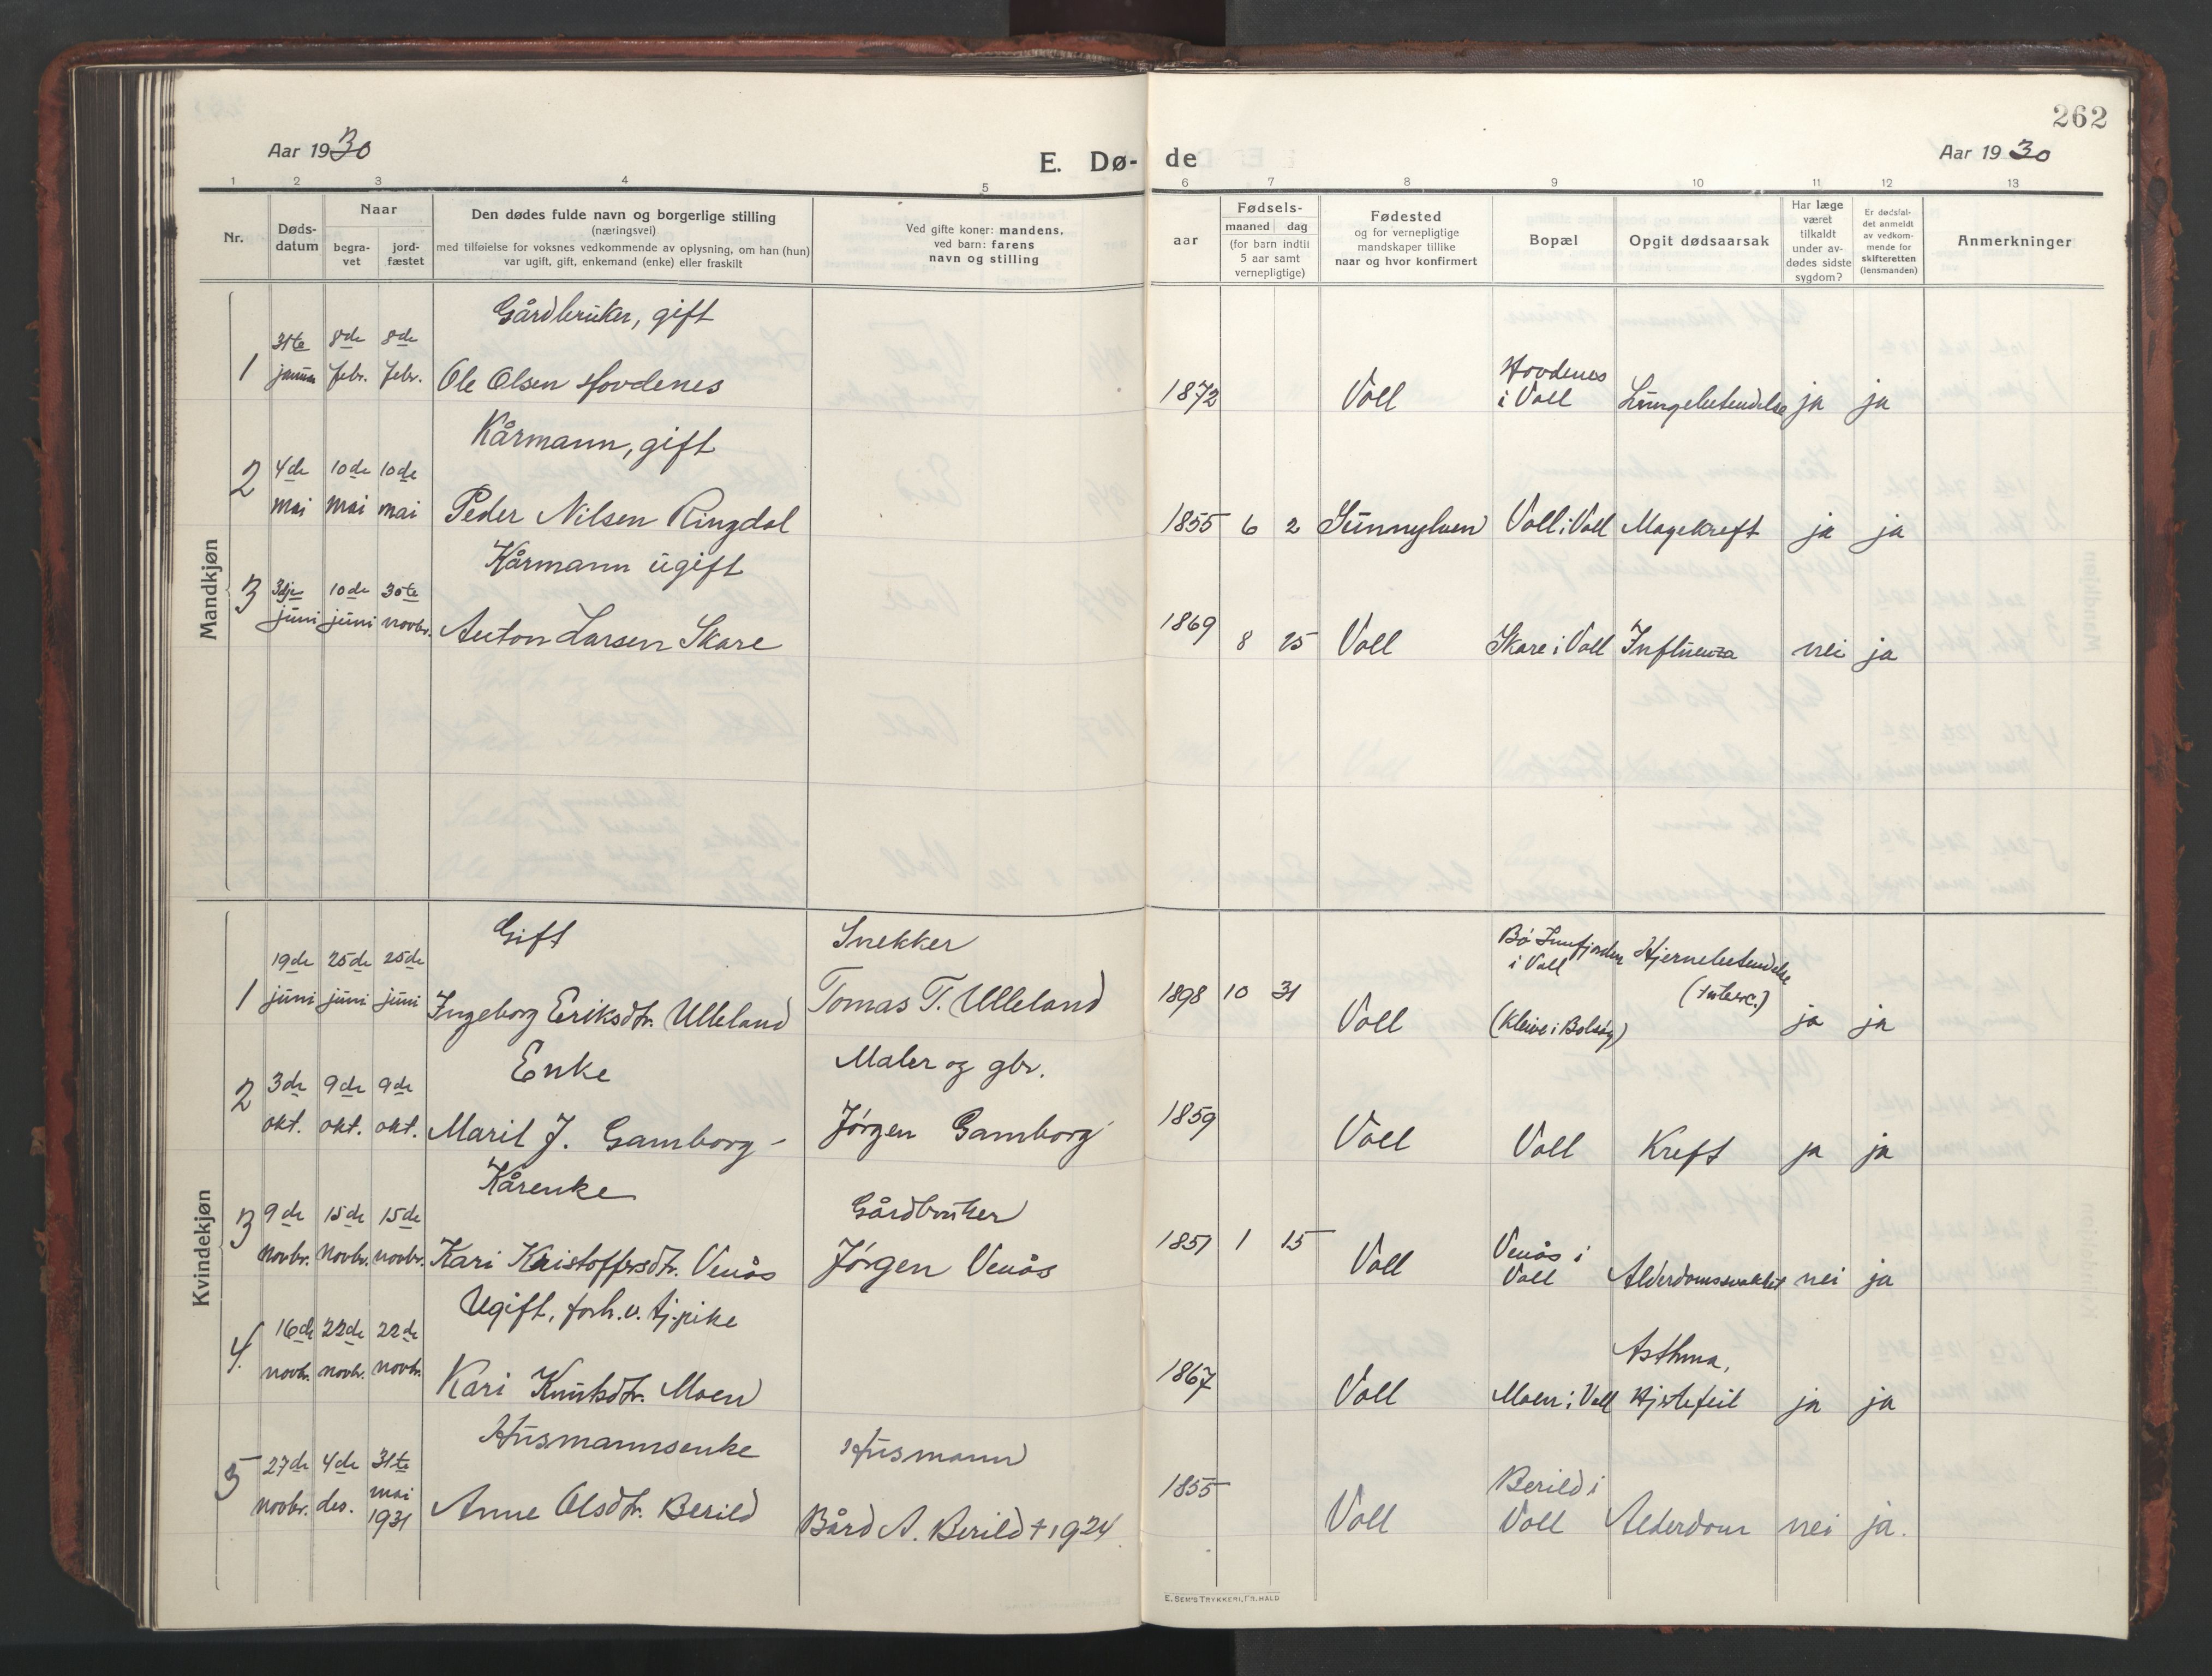 262
Aar 1930
E. Dø- de
Aar 1930
1 2 3 4 5 6 7 8 9 10 11 12 13
Nr.
Døds-
datum
Naar
begra-
vet
jord-
fæstet
Den dødes fulde navn og borgerlige stilling
(næringsvei)
med tilføielse for voksnes vedkommende av oplysning, om han (hun)
var ugift, gift, enkemand (enke) eller fraskilt
Ved gifte koner: mandens,
ved barn: farens
navn og stilling
aar
Fødsels-
maaned dag
(for barn indtil
5 aar samt
vernepligtige)
Fødested
og for vernepligtige
mandskaper tillike
naar og hvor konfirmert
Bopæl
Opgit dødsaarsak
Har læge
været
tilkaldt
under av-
dødes sidste
sygdom?
Er dødsfal-
det anmeldt
av vedkom-
mende for
skifteretten
(lensmanden)
Anmerkninger
Mandkjøn
Gårdbruker, gift
31te 8de 8de
1 januar febr. febr. Ole Olsen Hovdenes 1872 Voll Hovdenes
i Voll Lungebetendelse ja ja
Kårmann, gift
2 4de 10de 10de
mai mai mai Peder Nilsen Ringdal 1855 6 2 Sunnylven Voll i Voll Magekreft ja ja
Kårmann ugift
3 3dje 10de 30te
juni juni novbr. Anton Larsen Skare 1869 8 25 Voll Skare i Voll Influenza nei ja
Kvindekjøn
Gift Snekker
19de 25de 25de
1 juni juni juni Ingeborg Eriksdtr. Ulleland Tomas T. Ulleland 1898 10 31 Voll Bø Innfjorden
i Voll
(Kleive i Bolsøy) Hjernebetendelse
ja ja
Enke Maler og gbr.
2 3de 9de 9de
okt. okt. okt. Marit J. Gamborg - Jørgen Gamborg 1859 Voll Voll Kreft ja ja
Kårenke Gårdbruker
3 9de 15de 15de
novbr. novbr. novbr. Kari Kristoffersdtr. Venås Jørgen Venås 1851 1 15 Voll Venås i
Voll Alderdomssvakhet nei ja
Ugift, forh.v. tj.pike
4. 16de 22de 22de
novbr. novbr. novbr. Kari Knutsdtr. Moen 1867 Voll Moen i Voll Asthma,
Hjertefeil ja ja
Husmannsenke Husmann
5 27de 4de 31te
novbr. des. mai
1931 Anne Olsdtr. Berild Bård A. Berild † 1924. 1855 Voll Berild i
Voll Alderdom nei ja.
E. SEM'S TRYKKERI, FR. HALD